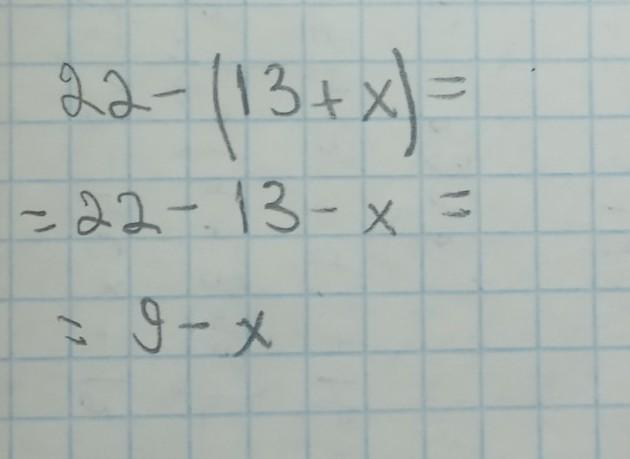 22 - (13 + x) =
= 22 - 13 - x =
= 9 - x